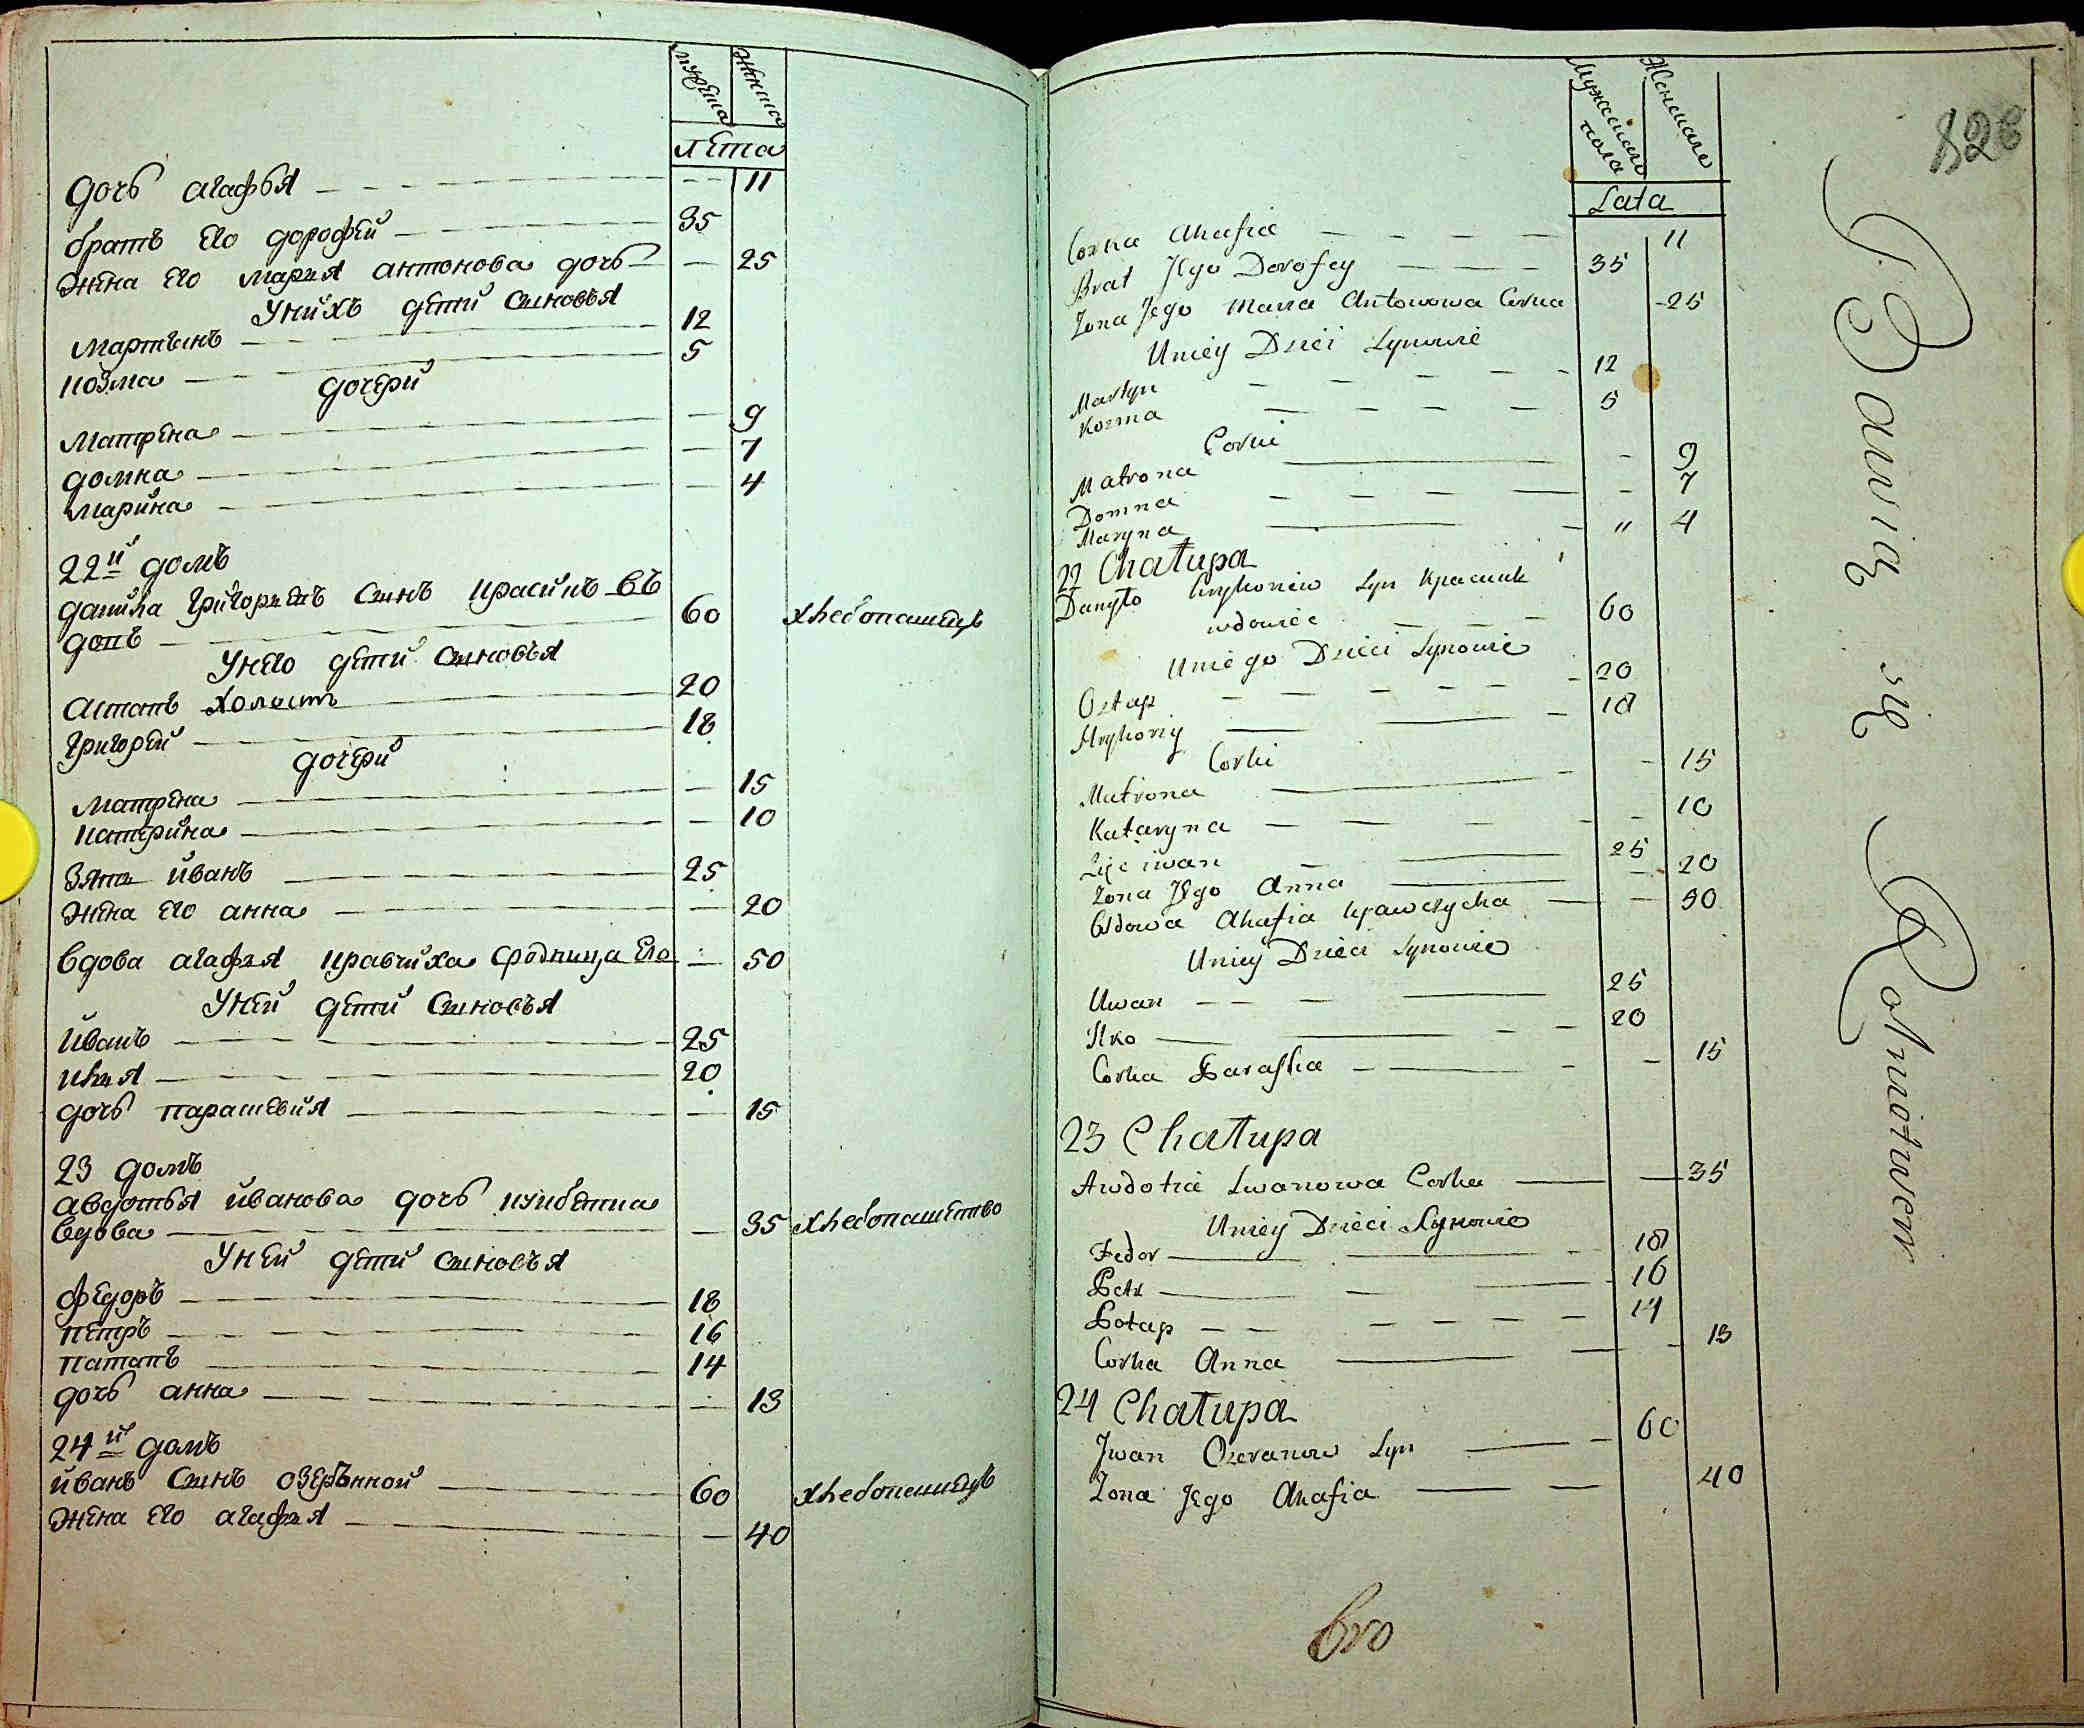 мужеска
женска
лета
дочь агафья 11
братъ его дорофей 35
жена его марья антонова дочь 25
У нихъ дети сыновья
мартынъ 12
козма 5
дочери
матрена 9
домна 7
марина 4
22й домъ
данила григорьевъ сынъ красикъ въ
допъ 60 хлебопашецъ
У него дети сыновья
астапъ холостъ 20
григорей 18
дочери
матрена 15
катерина 10
зять иванъ 25
жена его анна 20
вдова агафья кравчиха сродница его 50
У ней дети сыновья
иванъ 25
илья 20
дочь парасковия 15
23 домъ
авдотья иванова дочь
вдова 35 хлебопашество
У ней дети сыновья
федоръ 18
петръ 16
патапъ 14
дочь анна 13
24й домъ
иванъ сынъ озеранной 60 хлебопашецъ
жена его агафья 40
Мужескаго пола
Женскаго
Lata
Corka Ahafia 11
Brat Jego Dorofey 35
Zona Jego Maria Antonowa Corka 25
Uniey Dzieci Synowie
Martyn 12
Kozma 5
Corki
Matrona 9
Domna 7
Maryna " 4
22 Chałupa
Danyło Hryhoriew Syn Красик
wdowiec 60
Uniego Dzieci Synowie
Ostap 20
Hryhoriy 18
Corki
Matrona 15
Kataryna 10
Zięć iwan 25
Zona Jego Anna 20
Wdowa Ahafia Krawczycha 50
Uniey Dzieci Synowie
Iwan 25
Ilko 20
Corka Paraska 15
23 Chałupa
Awdotia Iwanowa Corka 35
Uniey Dzieci Synowie
Fedor 18
Petr 16
Potap 14
Corka Anna 13
24 Chałupa
Jwan Ozeranow Syn 60
Zona Jego Ahafia 40
Bawią się Rolnictwem